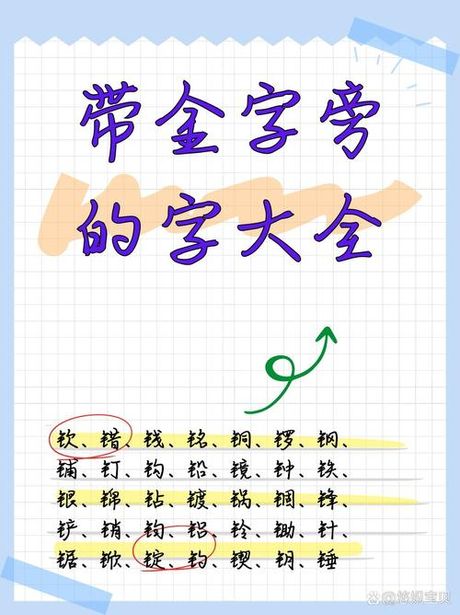 带金字旁
的字大全
钦、错、钱、铭、铜、锣、钢、
铺、钉、钩、铅、镜、钟、铁、
银、锦、钻、镀、锅、锢、锋、
铲、销、钧、铝、铃、锄、针、
锯、锨、锭、钓、锲、钥、锤